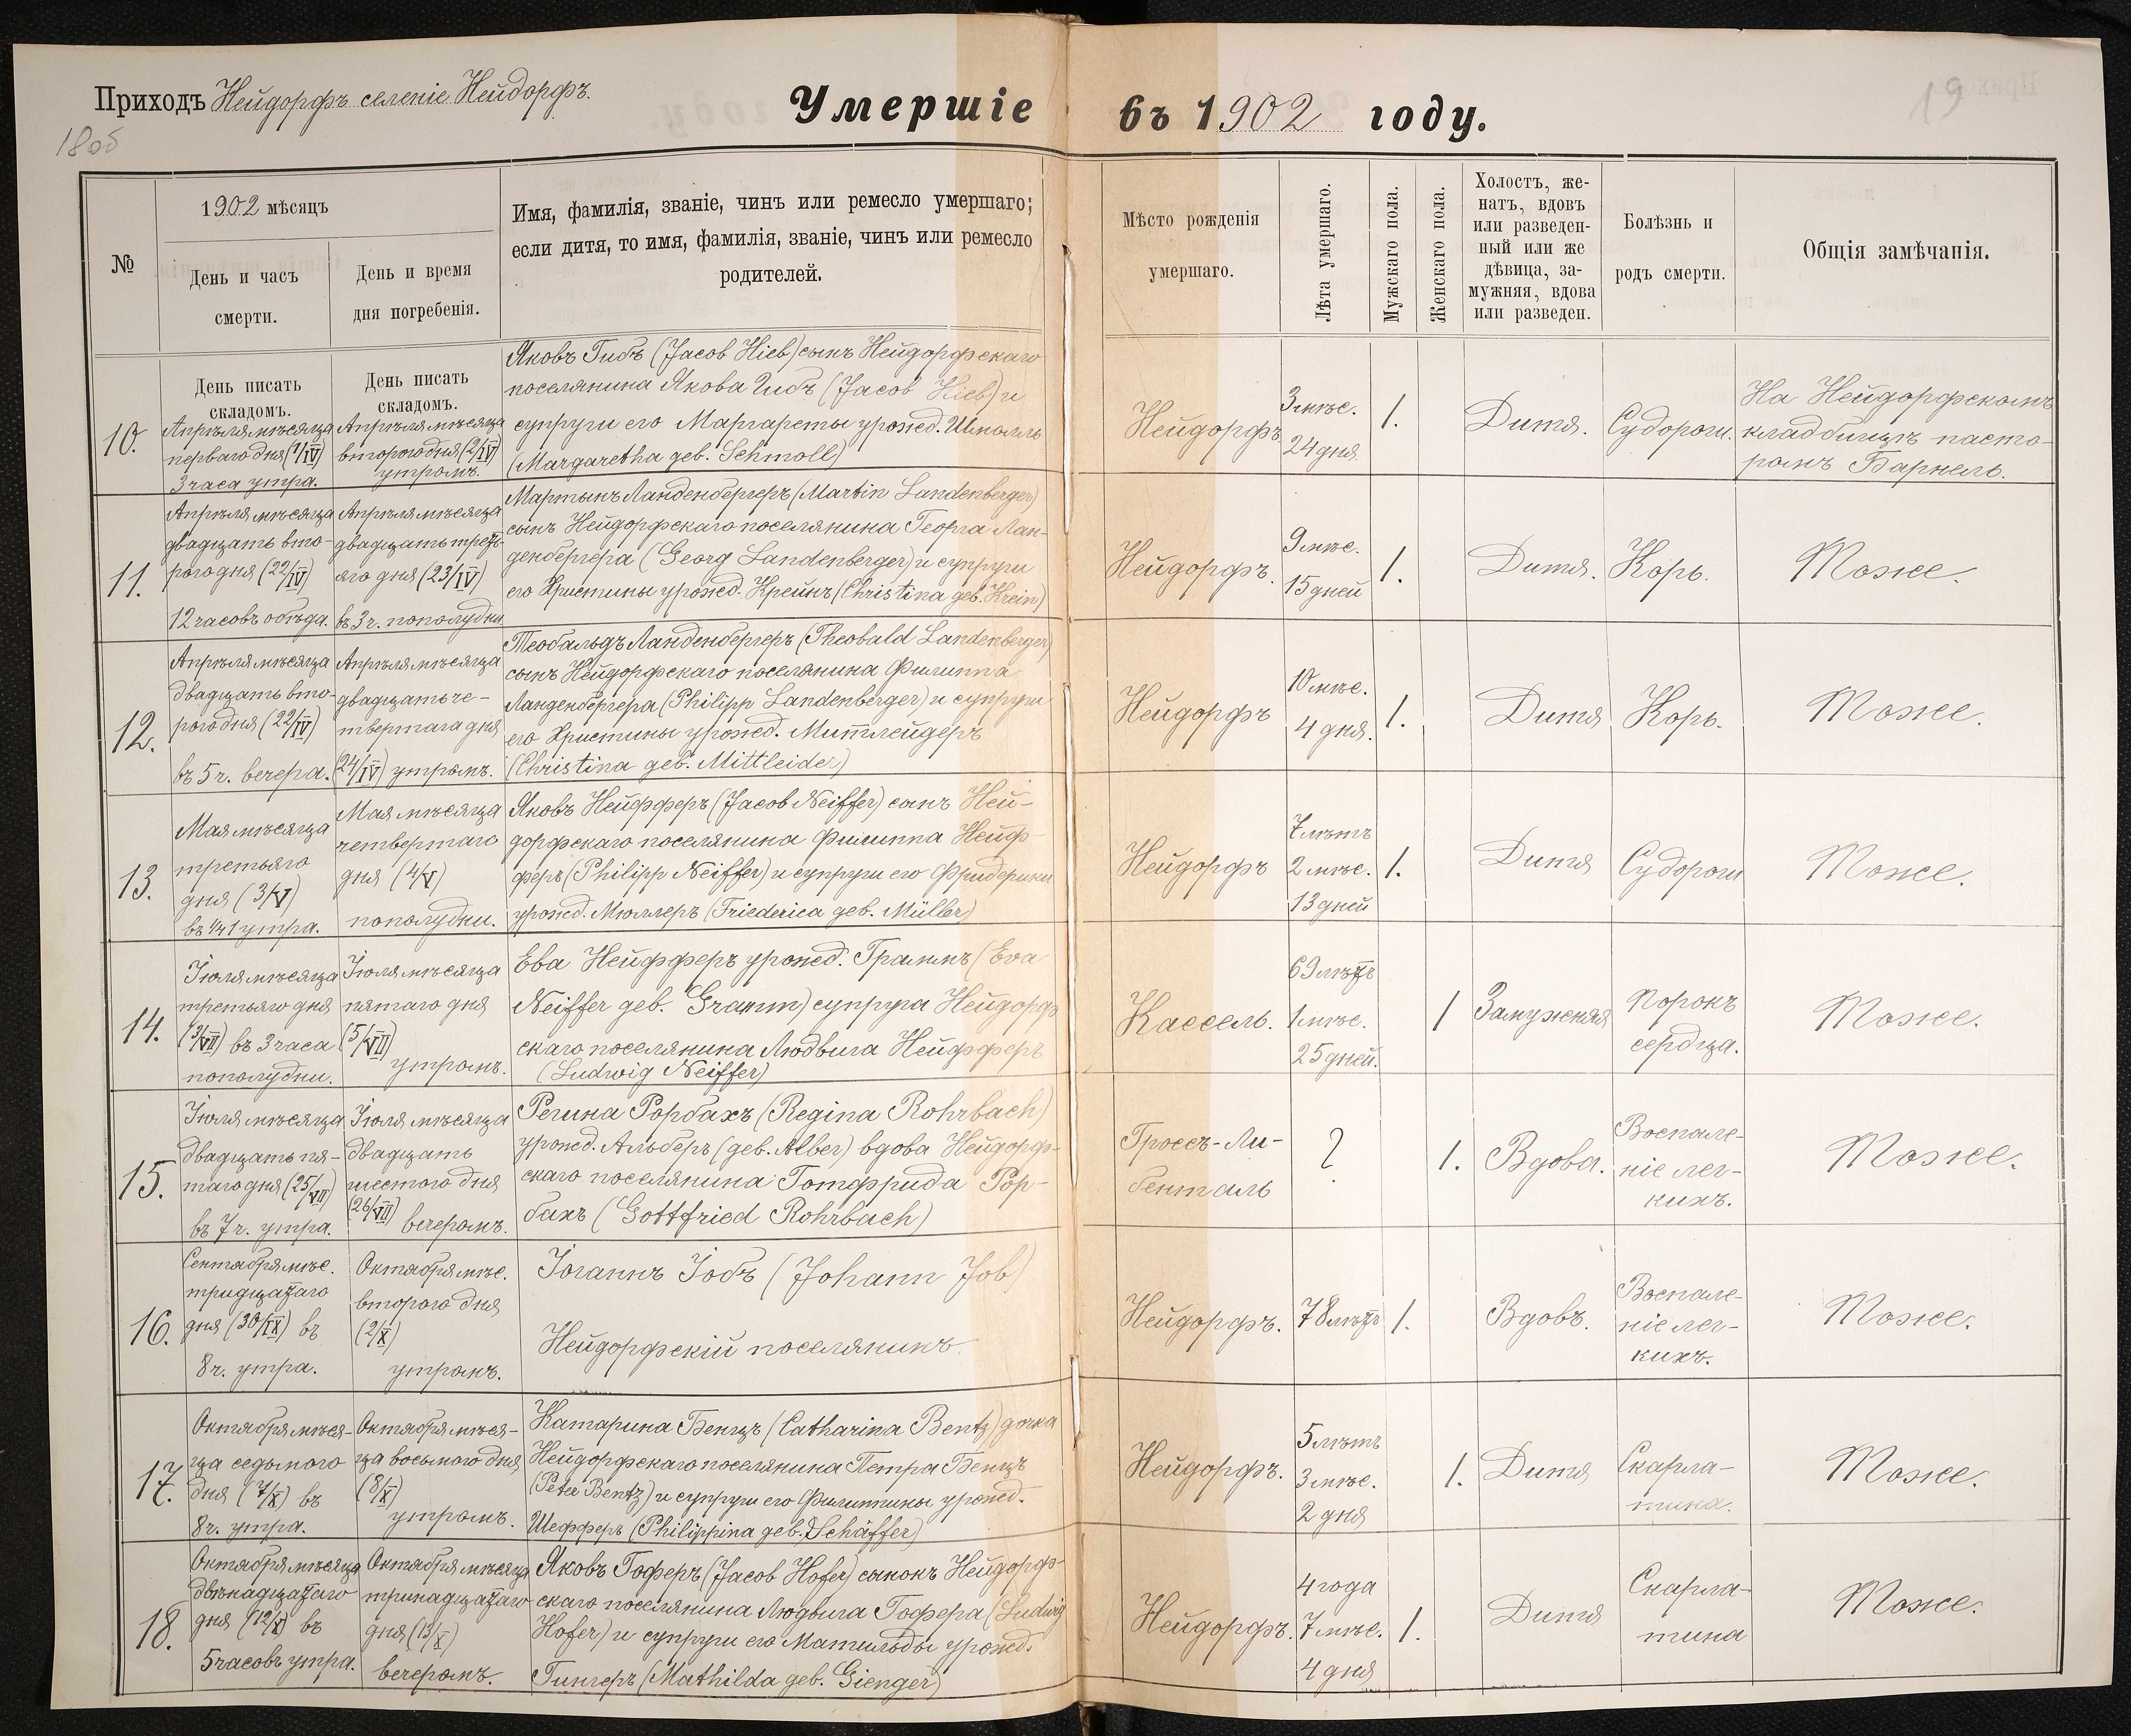 Приходъ Нейдорфъ селеніе Нейдорфъ.
18об
Умершіе въ 1902 году.
19
№
1902 мѣсяцъ
День и часъ
смерти.
День и время
дня погребенія.
Имя, фамилія, званіе, чинъ или ремесло умершаго;
если дитя, то имя, фамилія, званіе, чинъ или ремесло
родителей.
Мѣсто рожденія
умершаго.
Лѣта умершаго.
Мужскаго пола.
Женскаго пола.
Холостъ, же-
натъ, вдовъ
или разведен-
ный или же
дѣвица, за-
мужняя, вдова
или разведен.
Болѣзнь и
родъ смерти.
Общія замѣчанія.
10.
День писать
складомъ.
Апрѣля мѣсяца
перваго дня (1/IV)
3 часа утра.
День писать
складомъ.
Апрѣля мѣсяца
второго дня (2/IV)
утромъ.
Яковъ Гибъ (Jacob Hieb) сынъ Нейдорфскаго
поселянина Якова Гибъ (Jacob Hieb) и
супруги его Маргареты урожд. Шмолль
(Margaretha geb. Schmoll)
Нейдорфъ
3 мѣс.
24 дня.
1.
Дитя.
Судороги.
На Нейдорфскомъ
кладбищѣ пасто-
ромъ Барнель.
11.
Апрѣля мѣсяца
двадцать вто-
рого дня (22/IV)
12 часовъ обѣда.
Апрѣля мѣсяца
двадцать треть-
яго дня (23/IV)
въ 3 ч. пополудни
Мартынъ Ланденбергеръ (Martin Landenberger)
сынъ Нейдорфскаго поселянина Георга Лан-
денбергера (Georg Landenberger) и супруги
его Христины урожд. Крейнъ (Christina geb. Krein)
Нейдорфъ.
9 мѣс.
15 дней
1.
Дитя.
Корь.
Тоже.
12.
Апрѣля мѣсяца
двадцать вто-
рого дня (22/IV)
въ 5 ч. вечера.
Апрѣля мѣсяца
двадцать че-
твертага дня
(24/IV) утромъ.
Теобальдъ Ланденбергеръ (Theobald Landenberger)
сынъ Нейдорфскаго поселянина Филиппа
Ланденбергера (Philipp Landenberger) и супруги
его Христины урожд. Митлейдеръ
(Christina geb. Mittleider)
Нейдорфъ
10 мѣс.
4 дня.
1.
Дитя
Корь.
Тоже.
13.
Мая мѣсяца
третьяго
дня (3/V)
въ 1/4 1 утра.
Мая мѣсяца
четвертаго
дня (4/V)
пополудни.
Яковъ Нейфферъ (Jacob Neiffer) сынъ Ней-
дорфскаго поселянина Филиппа Нейф-
феръ (Philipp Neiffer) и супруги его Фридерики
урожд. Мюллеръ (Friederica geb. Müller)
Нейдорфъ
7 лѣтъ
2 мѣс.
13 дней
1.
Дитя
Судороги
Тоже.
14.
Іюля мѣсяца
третьяго дня
(3/VII) въ 3 часа
пополудни.
Іюля мѣсяца
пятаго дня
(5/VII)
утромъ.
Ева Нейфферъ урожд. Граммъ (Eva
Neiffer geb. Gramm) супруга Нейдорф
скаго поселянина Людвига Нейфферъ
(Ludwig Neiffer)
Кассель.
69 лѣтъ
1 мѣс.
25 дней.
1
Замужняя
Порокъ
сердца.
Тоже.
15.
Іюля мѣсяца
двадцать пя-
таго дня (25/VII)
въ 7 ч. утра.
Іюля мѣсяца
двадцать
шестого дня
(26/VII) вечеромъ.
Регина Рорбахъ (Regina Rohrbach)
урожд. Альберъ (geb. Alber) вдова Нейдорф-
скаго поселянина Готфрида Рор-
бахъ (Gottfried Rohrbach)
Гроссъ-Ли-
бенталь
?
1.
Вдова.
Воспале-
ніе лег-
кихъ.
Тоже.
16.
Сентября мѣс.
тридцатаго
дня (30/IX) въ
8 ч. утра.
Октября мѣс.
второго дня
(2/X)
утромъ.
Іоганнъ Іобъ (Johann Job)
Нейдорфскій поселянинъ.
Нейдорфъ.
78 лѣтъ
1.
Вдовъ.
Воспале-
ніе лег-
кихъ.
Тоже.
17.
Октября мѣся-
ца седьмого
дня (7/X) въ
8 ч. утра.
Октября мѣся-
ца восьмого дня
(8/X)
утромъ.
Катарина Бенцъ (Catharina Bentz) дочка
Нейдорфскаго поселянина Петра Бенцъ
(Peter Bentz) и супруги его Филиппины урожд.
Шефферъ (Philippina geb. Schäffer)
Нейдорфъ.
5 лѣтъ
3 мѣс.
2 дня
1.
Дитя
Скарла-
тина.
Тоже.
18.
Октября мѣсяца
двѣнадцатаго
дня (12/X) въ
5 часовъ утра.
Октября мѣсяца
тринадцатаго
дня (13/X)
вечеромъ.
Яковъ Гоферъ (Jacob Hofer) сынокъ Нейдорф-
скаго поселянина Людвига Гофера (Ludwig
Hofer) и супруги его Матильды урожд.
Гингеръ (Mathilda geb. Gienger)
Нейдорфъ.
4 года
7 мѣс.
4 дня
1.
Дитя
Скарла-
тина
Тоже.